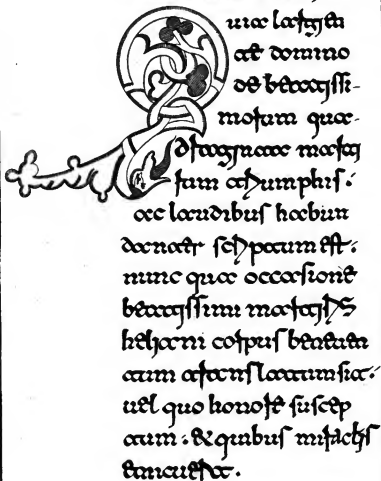 Quia largien
te domino
de beatissi-
morum qua-
draginta marty
rum triumphis:
ac laudibus habun
danter scriptum est:
nunc qua occasione
beatissimi martyris
heliani corpus beneuen
tum translatum sit:
uel quo honore suscep
tum: & quibus miraclis